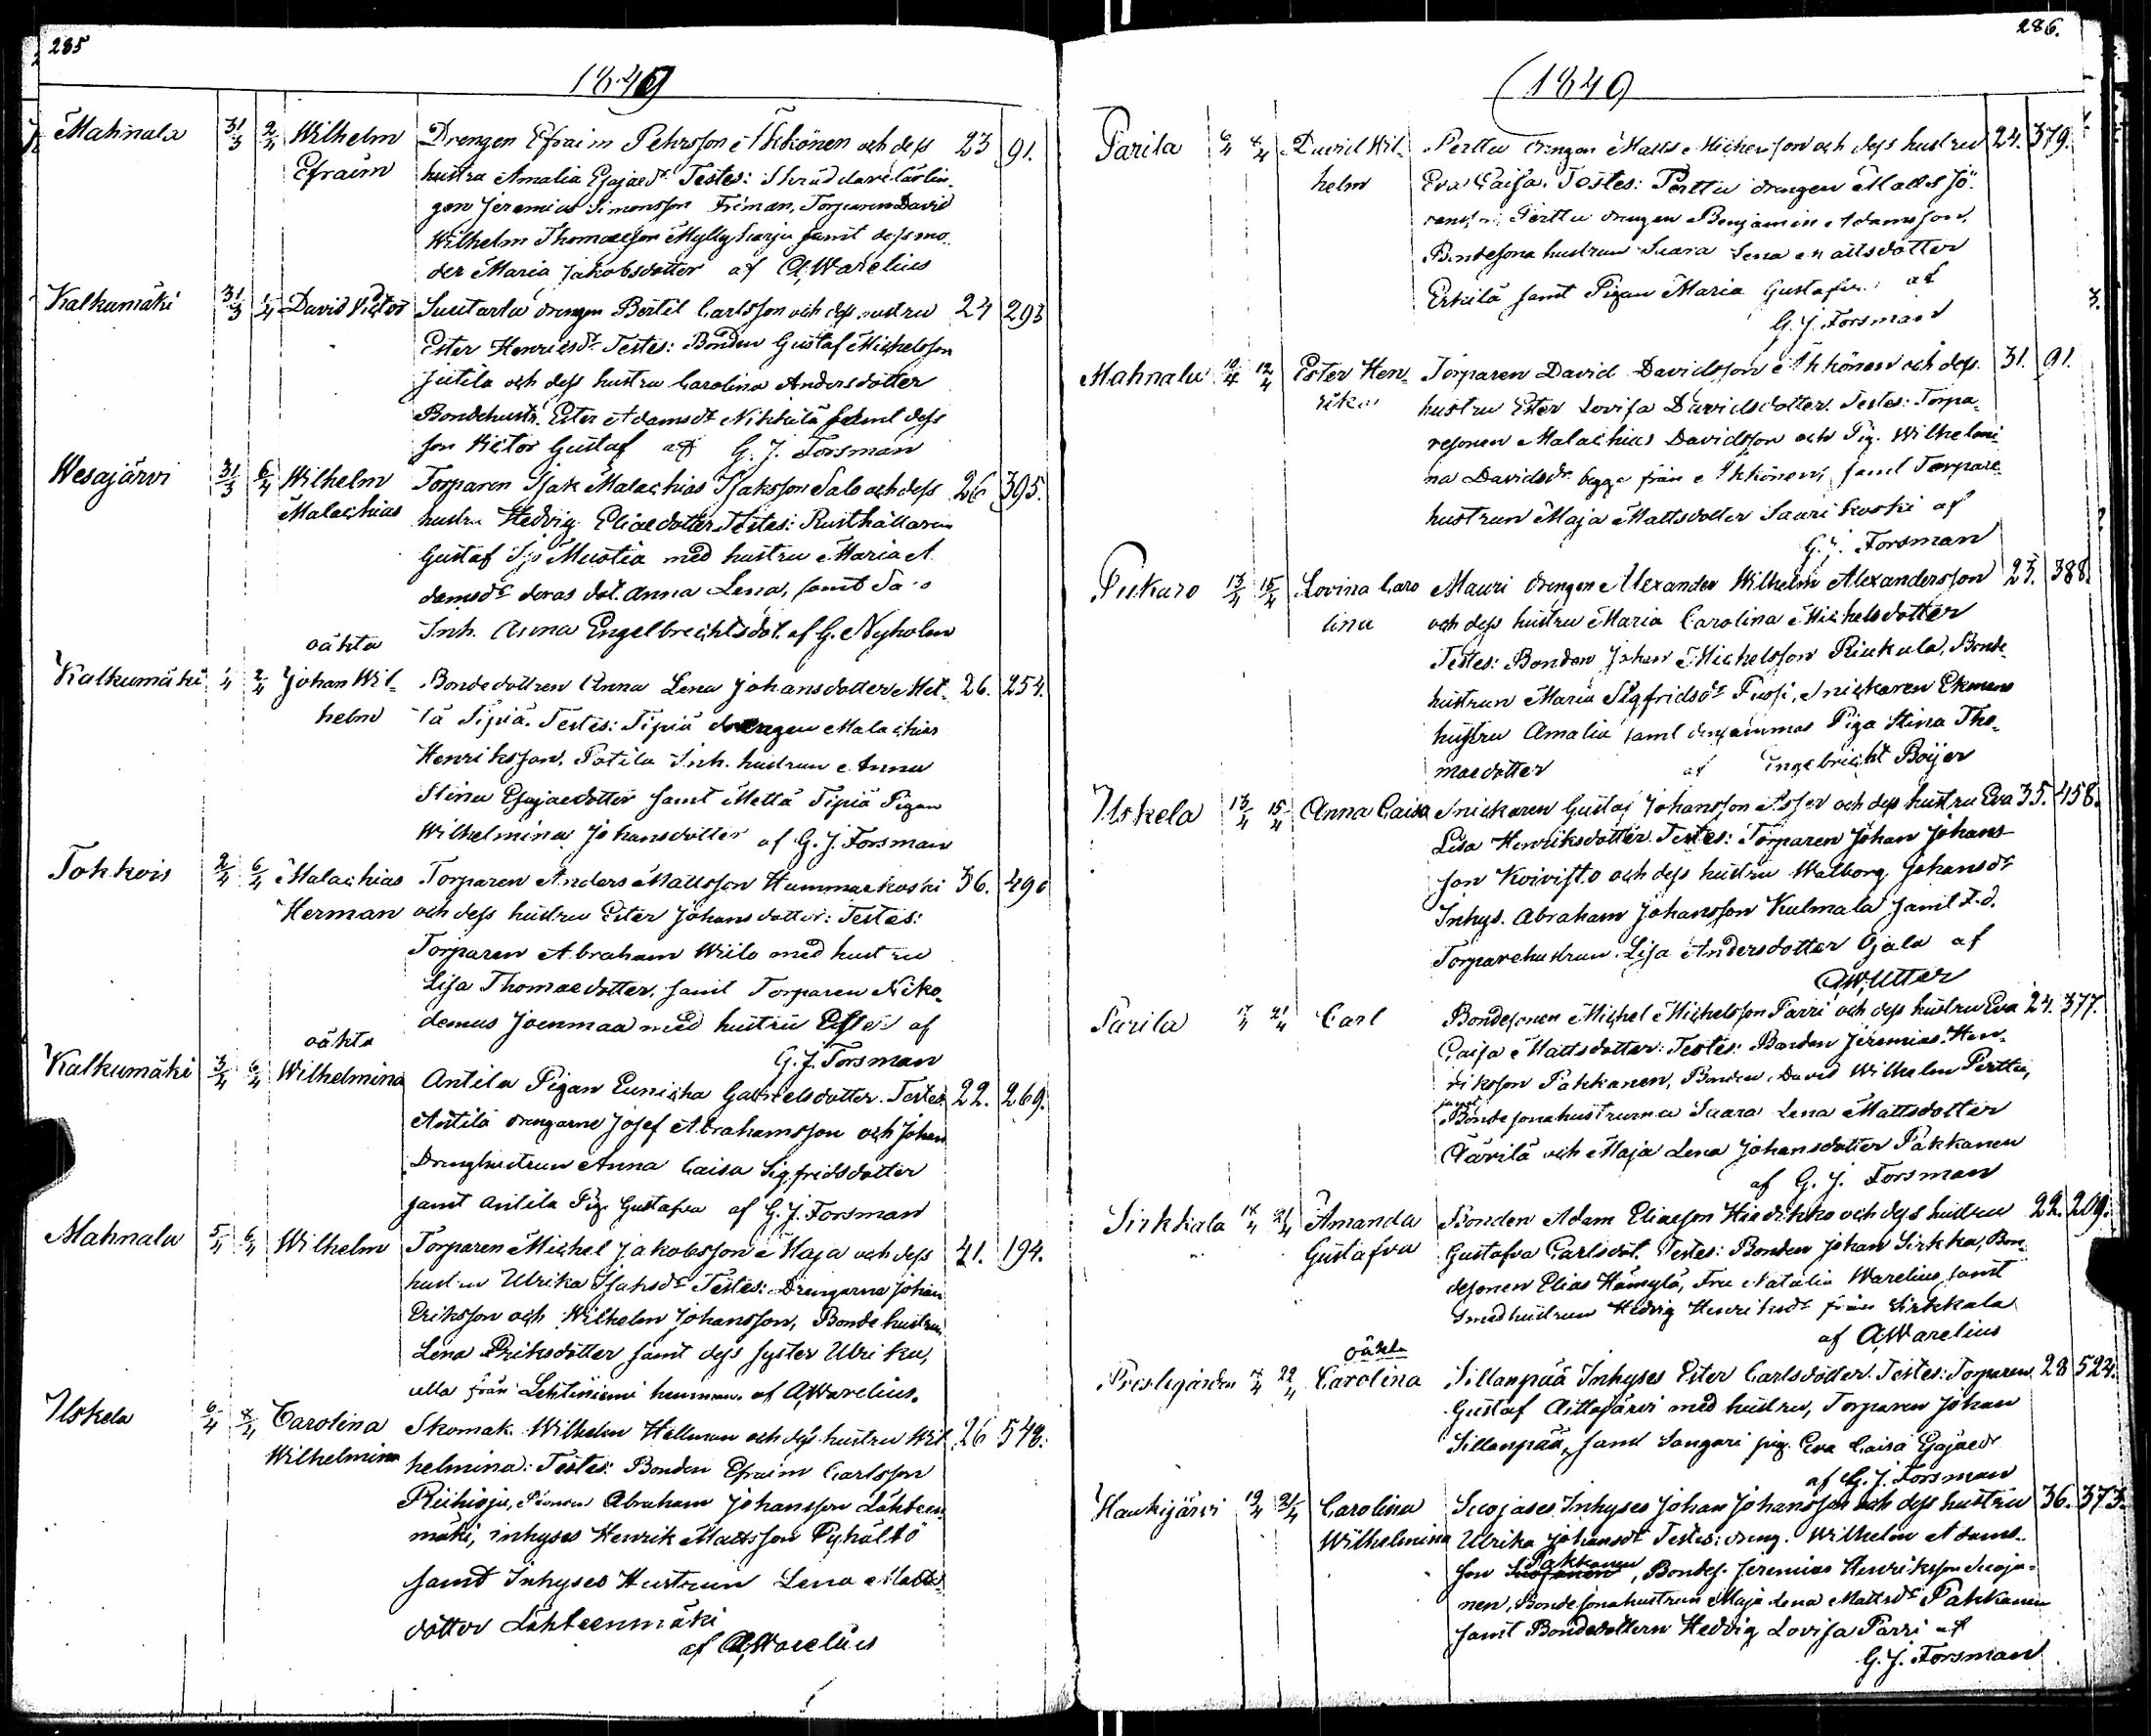 285
1849
Mahnala 31/3 2/4 Wilhelm Drengen Efraim Pehrsson Ahkönen och dess 23 91.
Efraim hustru Amalia Esajaedr Testes: Skräddare lärlin-
gen Jeremias Simonsson Friman, Torparen David
Wilhelm Thomasson Myllyharju samt dess mo-
der Maria Jakobsdotter af A. Warelius
Kalkumäki 31/3 1/4 David Victor Suutarla drengen Bertil Carlsson och dess hustru 24 293
Ester Henriksdr Testes: Bonden Gustaf Michelsson
Jutila och dess hustru Carolina Andersdotter
Bondehustr. Ester Adamsdr Nikkilä samt dess
son Victor Gustaf af G. J. Forsman
Wesajärvi 31/3 6/4 Wilhelm Torparen Isak Malachias Isaksson Salo och dess 26 395.
Malachias hustru Hedvig Eliaedotter Testes: Rusthållaren
Gustaf Mustia med hustru Maria A-
damsdr deras dot. Anna Lena, samt
Inh. Anna Engelbrechtsdot. af G. Nyholm
oäkta
Kalkumäki /4 2/4 Johan Wil- Bondedottren Anna Lena Johansdotter Met- 26. 254.
helm tä Sipiä. Testes: Sipiä drengen Malachias
Henriksson, Potila Inh. hustrun Anna
Stina Esajaedotter samt Mettä Sipiä Pigan
Wilhelmina Johansdotter af G. J. Forsman
Tokkois 2/4 6/4 Malachias Torparen Anders Mattsson Hummarkoski 36. 490
Herman och dess hustru Ester Johansdotter: Testes:
Torparen Abraham Wiilo med hustru
Lisa Thomaedotter, samt Torparen Niko-
demus Joenmaa med hustru Ester af
G. J. Forsman
oäkta
Kalkumäki 3/4 6/4 Wilhelmina Antila Pigan Eunicha Gabrielsdotter. Testes: 22. 269.
Antila drengarne Josef Abrahamsson och Johan
Drenghustrun Anna Caisa Sigfridsdotter
samt Antila Pig. Gustafva af G. J. Forsman
Mahnala 5/4 6/4 Wilhelm Torparen Michel Jakobsson Haja och dess 41. 194.
hustru Ulrika Isaksdr Testes: Drengarne Johan
Eriksson och Wilhelm Johansson, Bondehustrun
Lena Eriksdotter samt dess syster Ulrika,
alla från Lehtiniemi hemman. af A. Warelius.
Uskela 6/4 8/4 Carolina Skomak. Wilhelm Hellman och dess hustru Wil- 26 548.
Wilhelmina helmina: Testes: Bonden Efraim Carlsson
Riihioja, Abraham Johansson Lähteen-
mäki, inhyses Henrik Mattsson Pyhältö
samt Inhyses Hustrun Lena Matts-
dotter Lähteenmäki
af A. Warelius
286.
1849
Parila 6/4 8/4 David Wil- Perttu drengen Matts Michelsson och dess hustru 24. 379.
helm Eva Caisa. Testes: Perttu drengen Matts Jö-
ransson, Perttu drengen Benjamin Adamsson,
Bondesona hustrun Saara Lena Mattsdotter
Erkilä samt Pigan Maria Gustafva af
G. J. Forsman
Mahnala 10/4 12/4 Ester Hen- Torparen David Davidsson Ahkönen och dess 31. 91.
rika hustru Ester Lovisa Davidsdotter. Testes: Torpa-
resonen Malachias Davidsson och Pig. Wilhelmi-
na Davidsdr begge från Ahkönen, samt Torpare-
hustrun Maja Mattsdotter Saurikoski af
G. J. Forsman
Pukaro 13/4 15/4 Lovina Caro Mauri drengen Alexander Wilhelm Alexandersson 23. 388.
lina och dess hustru Maria Carolina Michelsdotter
Testes: Bonden Johan Michelsson Riukula, Bonde-
hustrun Maria Sigfridsdr Fussi, Snickaren Ekmans
hustru Amalia samt densammas Piga Stina Tho-
maedotter af Engelbrecht Boijer
Uskela 13/4 15/4 Anna Caisa Snickaren Gustaf Johansson och dess hustru Eva 35. 458.
Lisa Henriksdotter. Testes: Torparen Johan Johans-
son Koivisto och dess hustru Walborg Johansdr
Inhys. Abraham Johansson Kulmala samt F.d.
Torparehustrun Lisa Andersdotter Ojala af
A.W. Utter
Parila 17/4 21/4 Carl Bondesonen Michel Michelsson Parri och dess hustru Eva 24. 377.
Caisa Mattsdotter: Testes: Bonden Jeremias Hen-
riksson Pakkanen, Bonden David Wilhelm Perttu,
samt
Bondesonahustrurna Saara Lena Mattsdotter
Pärilä och Maja Lena Johansdotter Pakkanen
af G. J. Forsman
Sirkkala 18/4 21/4 Amanda Bonden Adam Eliaeson Haavikko och dess hustru 22. 209.
Gustafva Gustafva Carlsdot. Testes: Bonden Johan Sirkka, Bon-
desonen Elias Hämylä, Fru Natalia Warelius samt
smedhustrun Hedvig Henriksdr från Sirkkala
af A. Warelius
oäkta
Prestegården 18/4 22/4 Carolina Sillanpää Inhyses Ester Carlsdotter. Testes: Torparen 28 524.
Gustaf Aittojärvi med hustru, Torparen Johan
Sillanpää, samt Sangari pig. Eva Caisa Esajaedr
af G. J. Forsman
Haukijärvi 19/4 21/4 Carolina Suojases Inhyses Johan Johansson och dess hustru 36. 373.
Wilhelmina Ulrika Johansdr Testes: dreng. Wilhelm Adams-
Pakkanen
son Suojanen, Bondes. Jeremias Henriksson Suoja-
nen, Bondesonahustrun Maja Lena Mattsdr Pakkanen
samt Bondedottern Hedvig Lovisa Parri af
G. J. Forsman